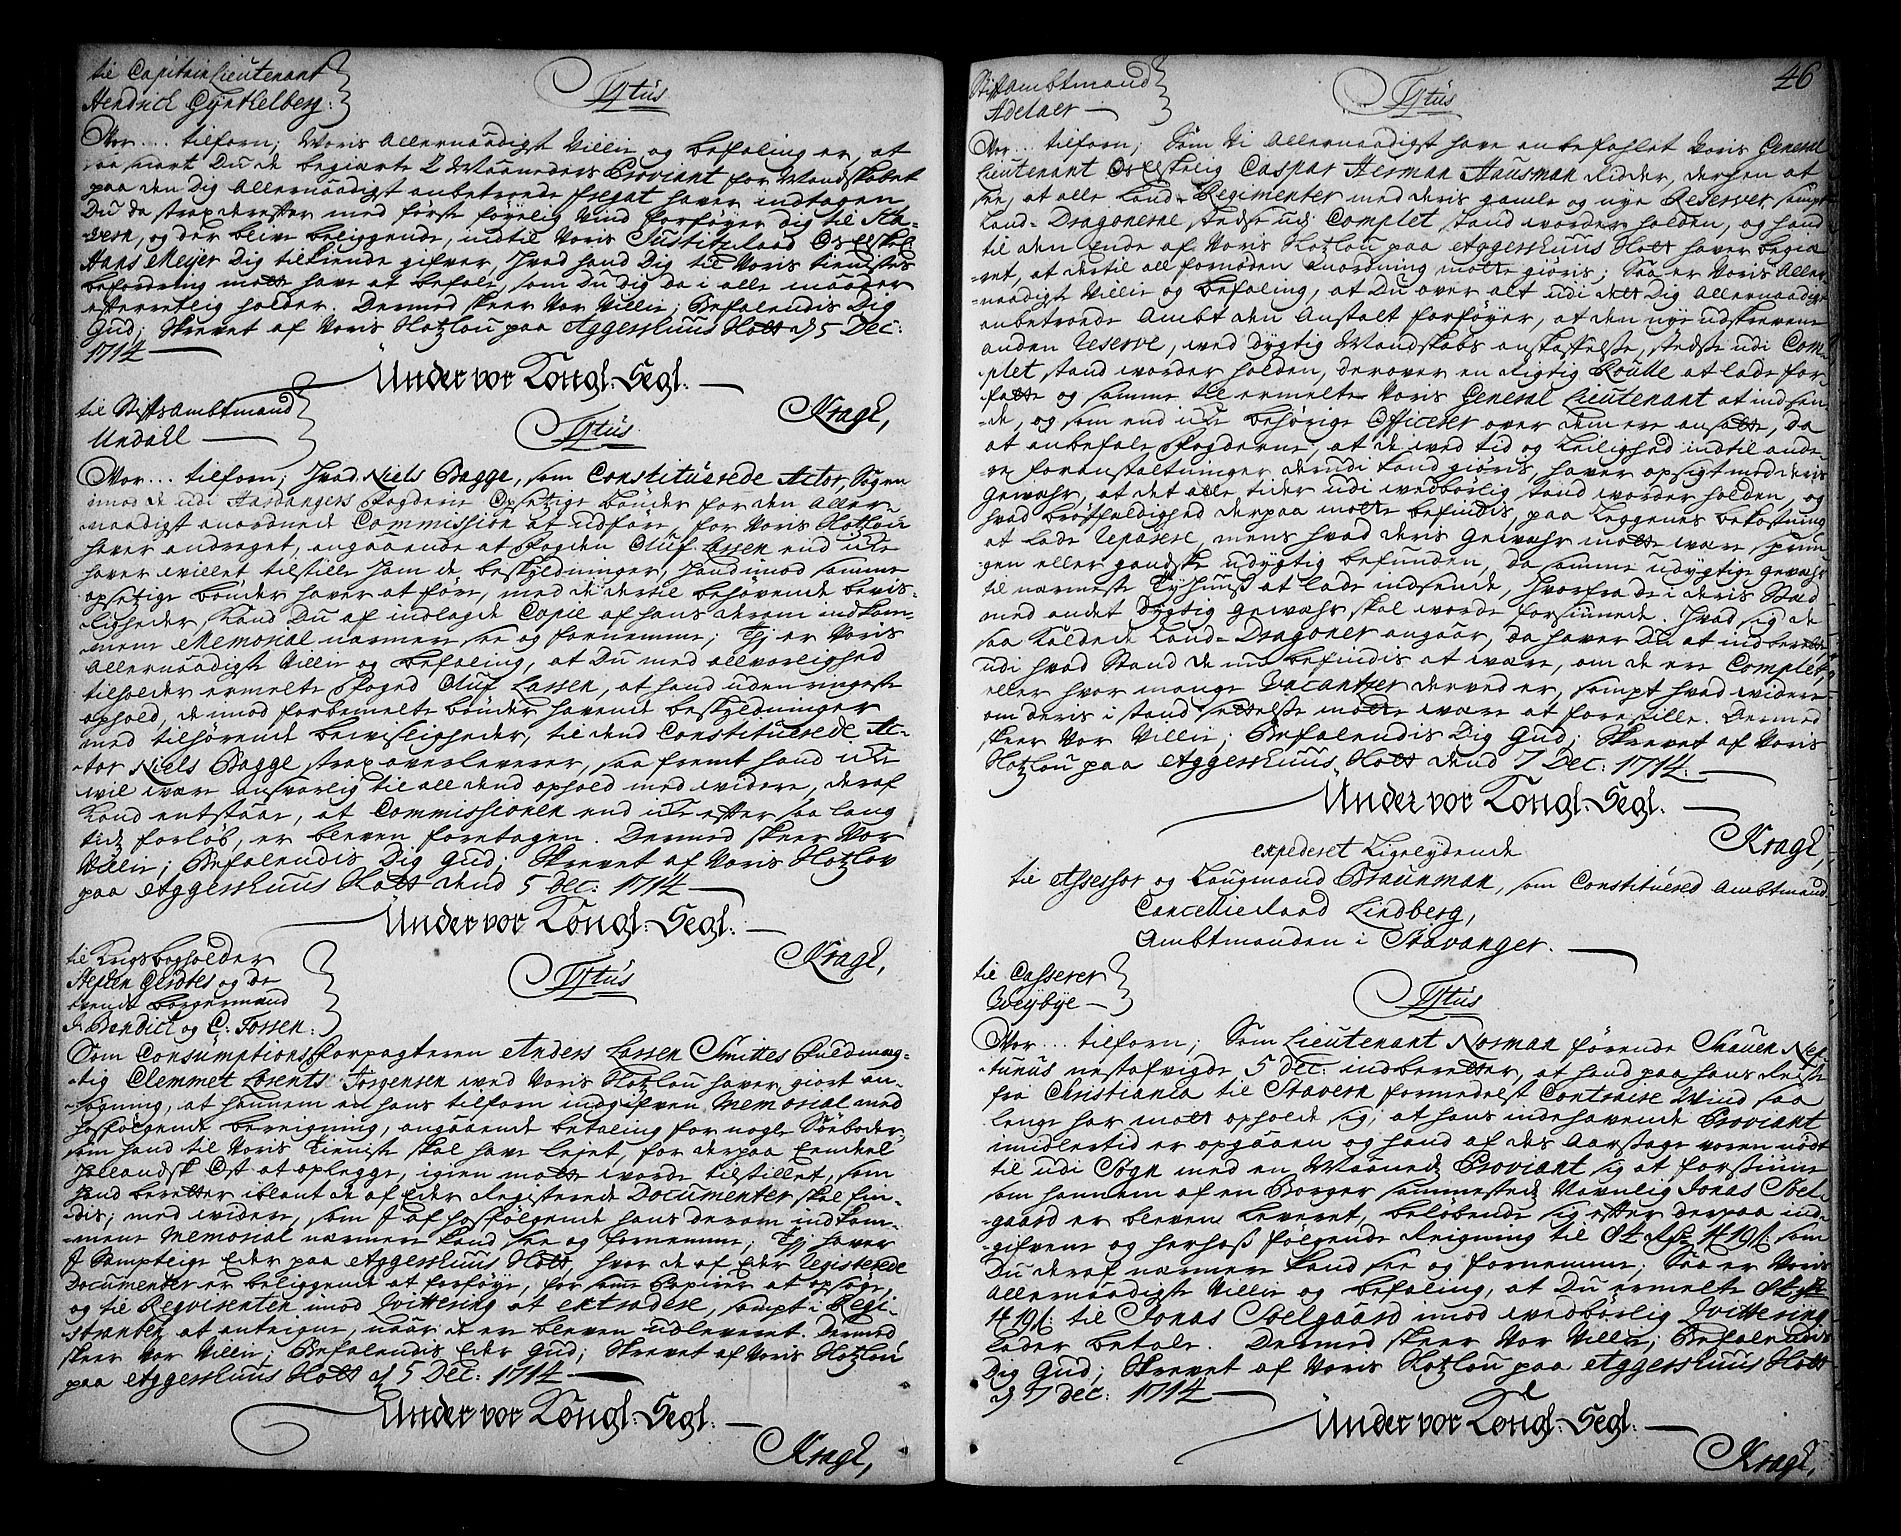 til Capitain Lieutenant
Hendrich Gynthelberg:
Tytus
Vor ... tilforn; Woris Allernaadigst Villie og befaling er, at
saa snart Du de begiærte 2 Maaneders Proviant for Mandskabet
paa den Dig Allernaadigst anbetroede fregat haver indtagen
Du da strax derefter med første føyelig Vind forføyer dig til Sta-
vern, og der blive beliggende, indtil Voris Justitzraad Oselskel
Hans Meyer Dig tilkiende gifver, hvad hand Dig til Voris tienistes
befordring motte have at befale, som Du dig da i alle maader
efterretlig holder. Dermed skeer Vor Villie; Befalendis Dig
Gud; Skrevet af Voris Slotzlou paa Aggershuus Slott d 5 Dec:
1714
Under vor Kongl: Segl.
Kragh,
til Stiftsambtmand
Undahl
Tytus
Vor ... tilforn; Hvad Niels Bagge, som Constituerede Actor, Sagen
imod de udi Hardangers fogderie Opsetzige bønder for den Aller-
naadigst anordnede Commission at udføre, for Voris Slotzlou
haver andraget, angaaende at fogden Oluf Lassen end icke
haver willet tilstille ham de beskyldninger, hand imod samme
opsetzige bønder haver at føre, med de dertil behøvende bevis-
ligheder, kand Du af indlagde Copie af hans derom indkom-
mene Memorial nærmere see og fornemme; Thj er Voris
Allernaadigste Villie og befaling, at Du med allvorlighed
tilholder ermelte foged Oluf Lassen, at hand uden ringeste
ophold, de imod forbemelte bønder havende beskyldninger
med tilhørende bevisligheder, til dend Constituerede Ac-
tor Niels Bagge strax overleverer, saa fremt hand icke
wil være ansvorlig til all dend ophold med widere, deraf
kand entstaar, at Commissionen end icke efter saa lang
tidz forløb, er bleven foretagen. Dermed skeer Vor
Villie; Befalendis Dig Gud; Skrevet af Voris Slotzlov
paa Aggershuus Slott dend 5 Dec: 1714
Under vor Kongl: Segl.
Kragh,
til Krigsbogholder
Steffen Gerdtes og de
tvende borgermænd
J. Bendich og C. Tossen:
Tytus
Som Consumptions forpagteren Anders Lassen Smittes fuldmæg-
tig Clemmet Lorents Jørgensen wed Voris Slotzlou haver giort an-
søgning, at hannem en hans tilforn indgifven Memorial med
hosfølgende bereigning, angaaende betaling for nogle Søeboder,
som hand til Voris Tieniste skal have lejet, for derpaa Eendeel
Hollandsk Ost at oplegge, igien motte worde tilstillet, som
hand beretter iblant de af Eder Registerede Documenter skal fin-
dis; med widere, som J af hosfølgende hans derom indkom-
mene Memorial nærmere kand see og fornemme; Thj haver
J Samptlige Eder paa Aggershuus Slott, hvor de af Eder Registerede
Documenter er beliggende at forføye, for samme Papirer at opsøge,
og til Reqvisenten imod Qvittering at extradere, sampt i Regi-
stranten at anteigne, naar det er bleven udleveret. Dermed
skeer Vor Villie; Befalendis Eder Gud; Skrevet af Voris Slotzlou
paa Aggershuus Slott d 5 Dec: 1714
Under vor Kongl: Segl.
Kragh,
46
Stiftsambtmand
Adelaer
Tytus
Vor ... tilforn; Som Vi Allernaadigst have anbefahlet Voris General
Lieutenant Oselskelig Caspar Herman Hausman Ridder, derhen at
see, at alle Land-Regimenter med deris gamle og nye Reserver, sampt
Land-Dragonerne, stedse udi Complet stand worder holden, og hand
til den Ende af Voris Slotzlou paa Aggershuus Slott haver begiæ-
ret, at dertil all fornøden anordning motte giøris; Saa er Voris Aller-
naadigste Villie og befaling, at Du over alt udi dett Dig Allernaadigst
anbetroede Ambt den Anstalt forføyer, at den nye udskrevene
anden Reserve, wed dygtig Mandskabs anskaffelse, stedse udi Com-
plet stand worder holden, derover en Rigtig Roulle at lade for-
fatte og samme til ermelte Voris General Lieutenant at indsen-
de, og som end icke behørige Officerer over dem ere ansatte, da
at anbefale fogderne, at de wed tid og Leilighed indtil ande-
re foranstaltninger derudi kand giøris, haver opsigt med deris
Gewæhr, at det alle tider udi wedbørlig stand worder holden, og
hvad brøstfældighed derpaa motte befindis, paa Leggenes bekostning
at lade reparere, mens hvad deris Gewæhr motte være sprun-
gen eller gandske udygtig befunden, da samme udygtige Gewæhr
til nærmeste Tyhuuss at lade indsende, hvorfra de i deris Stæd
med andet dygtig Gewæhr skal worde forsiunede. Hvad sig de
saa kaldede Land-Dragoner angaar, da haver Du at indberette
udi hvad Stand de nu befindis at være, om de ere Complet,
eller hvor mange Vacantzer derved er, sampt hvad widere
om deris i stand settelse motte være at forestille. Dermed
skeer Vor Villie; Befalendis Dig Gud; Skrevet af Voris
Slotzlou paa Aggershuus Slott dend 7 Dec: 1714.
Under vor Kongl: Segl.
Kragh,
expederet Ligelydende
til Assessor og Laugmand Braunman, som Constituered Ambtmand
Cancellie Raad Lindberg,
Ambtmanden i Stavanger.
til Casserer
Weybye
Tytus
Vor ... tilforn; Som Lieutenant Norman førende Skauen Nep-
tunus nestafvigde 5 Dec: indberetter, at hand paa hans Reise
fra Christiania til Stavern formedelst Contraire Wind saa
lenge har mott opholde sig, at hans indehavende Proviant
imidlertid er opgaaen og hand af des Aarsage voren nødt
til udi Sogn med en Maaned Proviant sig at forsiune
som hannem af en Borger sammesteds Navnlig Jonas Soel-
gaard er bleven Leveret, beløbende sig efter derpaa ind-
gifvene og herhoss følgende Reigning til 84 Rdr 4 19 s: som
Du deraf nærmere kand see og fornemme; Saa er Voris
Allernaadigste Villie og befaling, at Du ermelte 84 Rdr
4 19 s: til Jonas Soelgaard imod wedbørlig Qvittering
lader betale. Dermed skeer Vor Villie; Befalendis
Dig Gud; Skrevet af Voris Slotzlou paa Aggershuus Slott
d 7 Dec: 1714
Under vor Kongl: Segl.
Kragh,